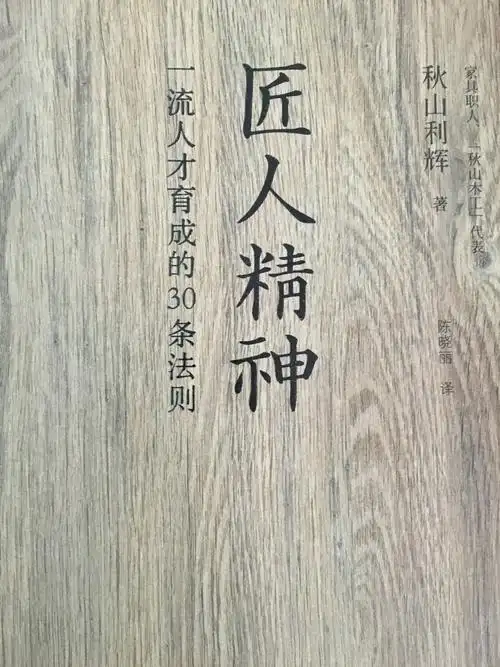 家具职人、「秋山木工」代表
秋山利辉 著
陈晓丽 译
匠人精神
一流人才育成的30条法则